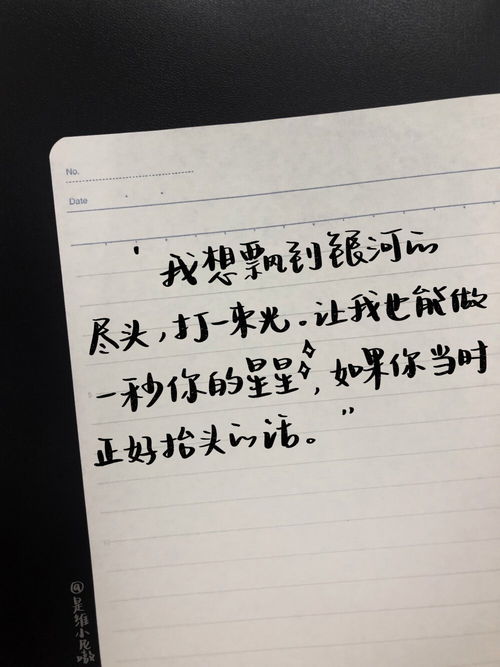 No.
Date
'我想飘到银河的
尽头,打一束光。让我也能做
一秒你的星星,如果你当时
正好抬头的话。"
@是维小尼嗷